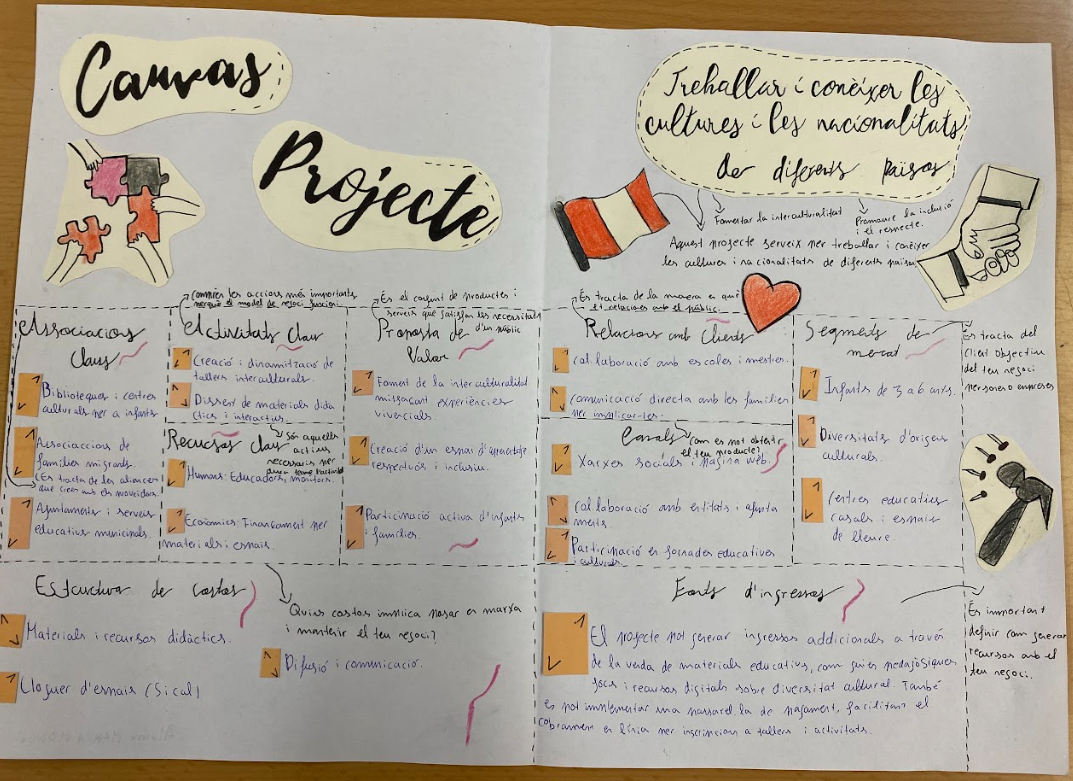 Canvas
Projecte
Treballar i conèixer les
cultures i les nacionalitats
de diferents països
Fomentar la interculturalitat
Promoure la inclusió
i el respecte.
Aquest projecte serveix per treballar i conèixer
les cultures i nacionalitats de diferents països
Associacions
Claus
Biblioteques i centres
culturals per a infants
Associacions de
famílies migrants.
(Es tracta de les aliances
que creen amb els proveïdors)
Ajuntaments i serveis
educatius municipals.
Comprèn les accions més importants
perquè el model de negoci funcioni.
Activitats Clau
Creació i dinamització de
tallers interculturals.
Disseny de materials didà
ctics i interactius.
Recursos Clau
Són aquells
actius
necessaris per
Humans: Educadors, monitors.
Econòmics: Finançament per
materials i espais.
És el conjunt de productes i
serveis que satisfan les necessitats
d'un públic
Proposta de
Valor
Foment de la interculturalitat
mitjançant experiències
vivencials.
Creació d'un espai d'aprenentatge
respectuós i inclusiu.
Participació activa d'infants
i famílies.
Es tracta de la manera en què
et relaciones amb el públic.
Relacions amb Clients
Col·laboració amb escoles i mestres.
Comunicació directa amb les famílies
per implicar-les.
Canals
Com es pot obtenir
el teu producte?
Xarxes socials i pàgina web.
Col·laboració amb entitats i ajunta
ments.
Participació en jornades educatives
i culturals.
Segments de
mercat
Infants de 3 a 6 anys.
Diversitats d'origens
culturals.
Centres educatius
casals i espais
de lleure.
Es tracta del
Client Objectiu
del teu negoci
persones o empreses
Estructura de costos
Materials i recursos didàctics.
Lloguer d'espais (Si cal)
Quins costos implica posar en marxa
i mantenir el teu negoci?
Difusió i comunicació.
Fonts d'ingressos
El projecte pot generar ingressos addicionals a través
de la venda de materials educatius, com guies pedagògiques
jocs i recursos digitals sobre diversitat cultural. També
es pot implementar una passarel·la de pagament, facilitant el
cobrament en línia per inscripcions a tallers i activitats.
És important
definir com generar
recursos amb el
teu negoci.